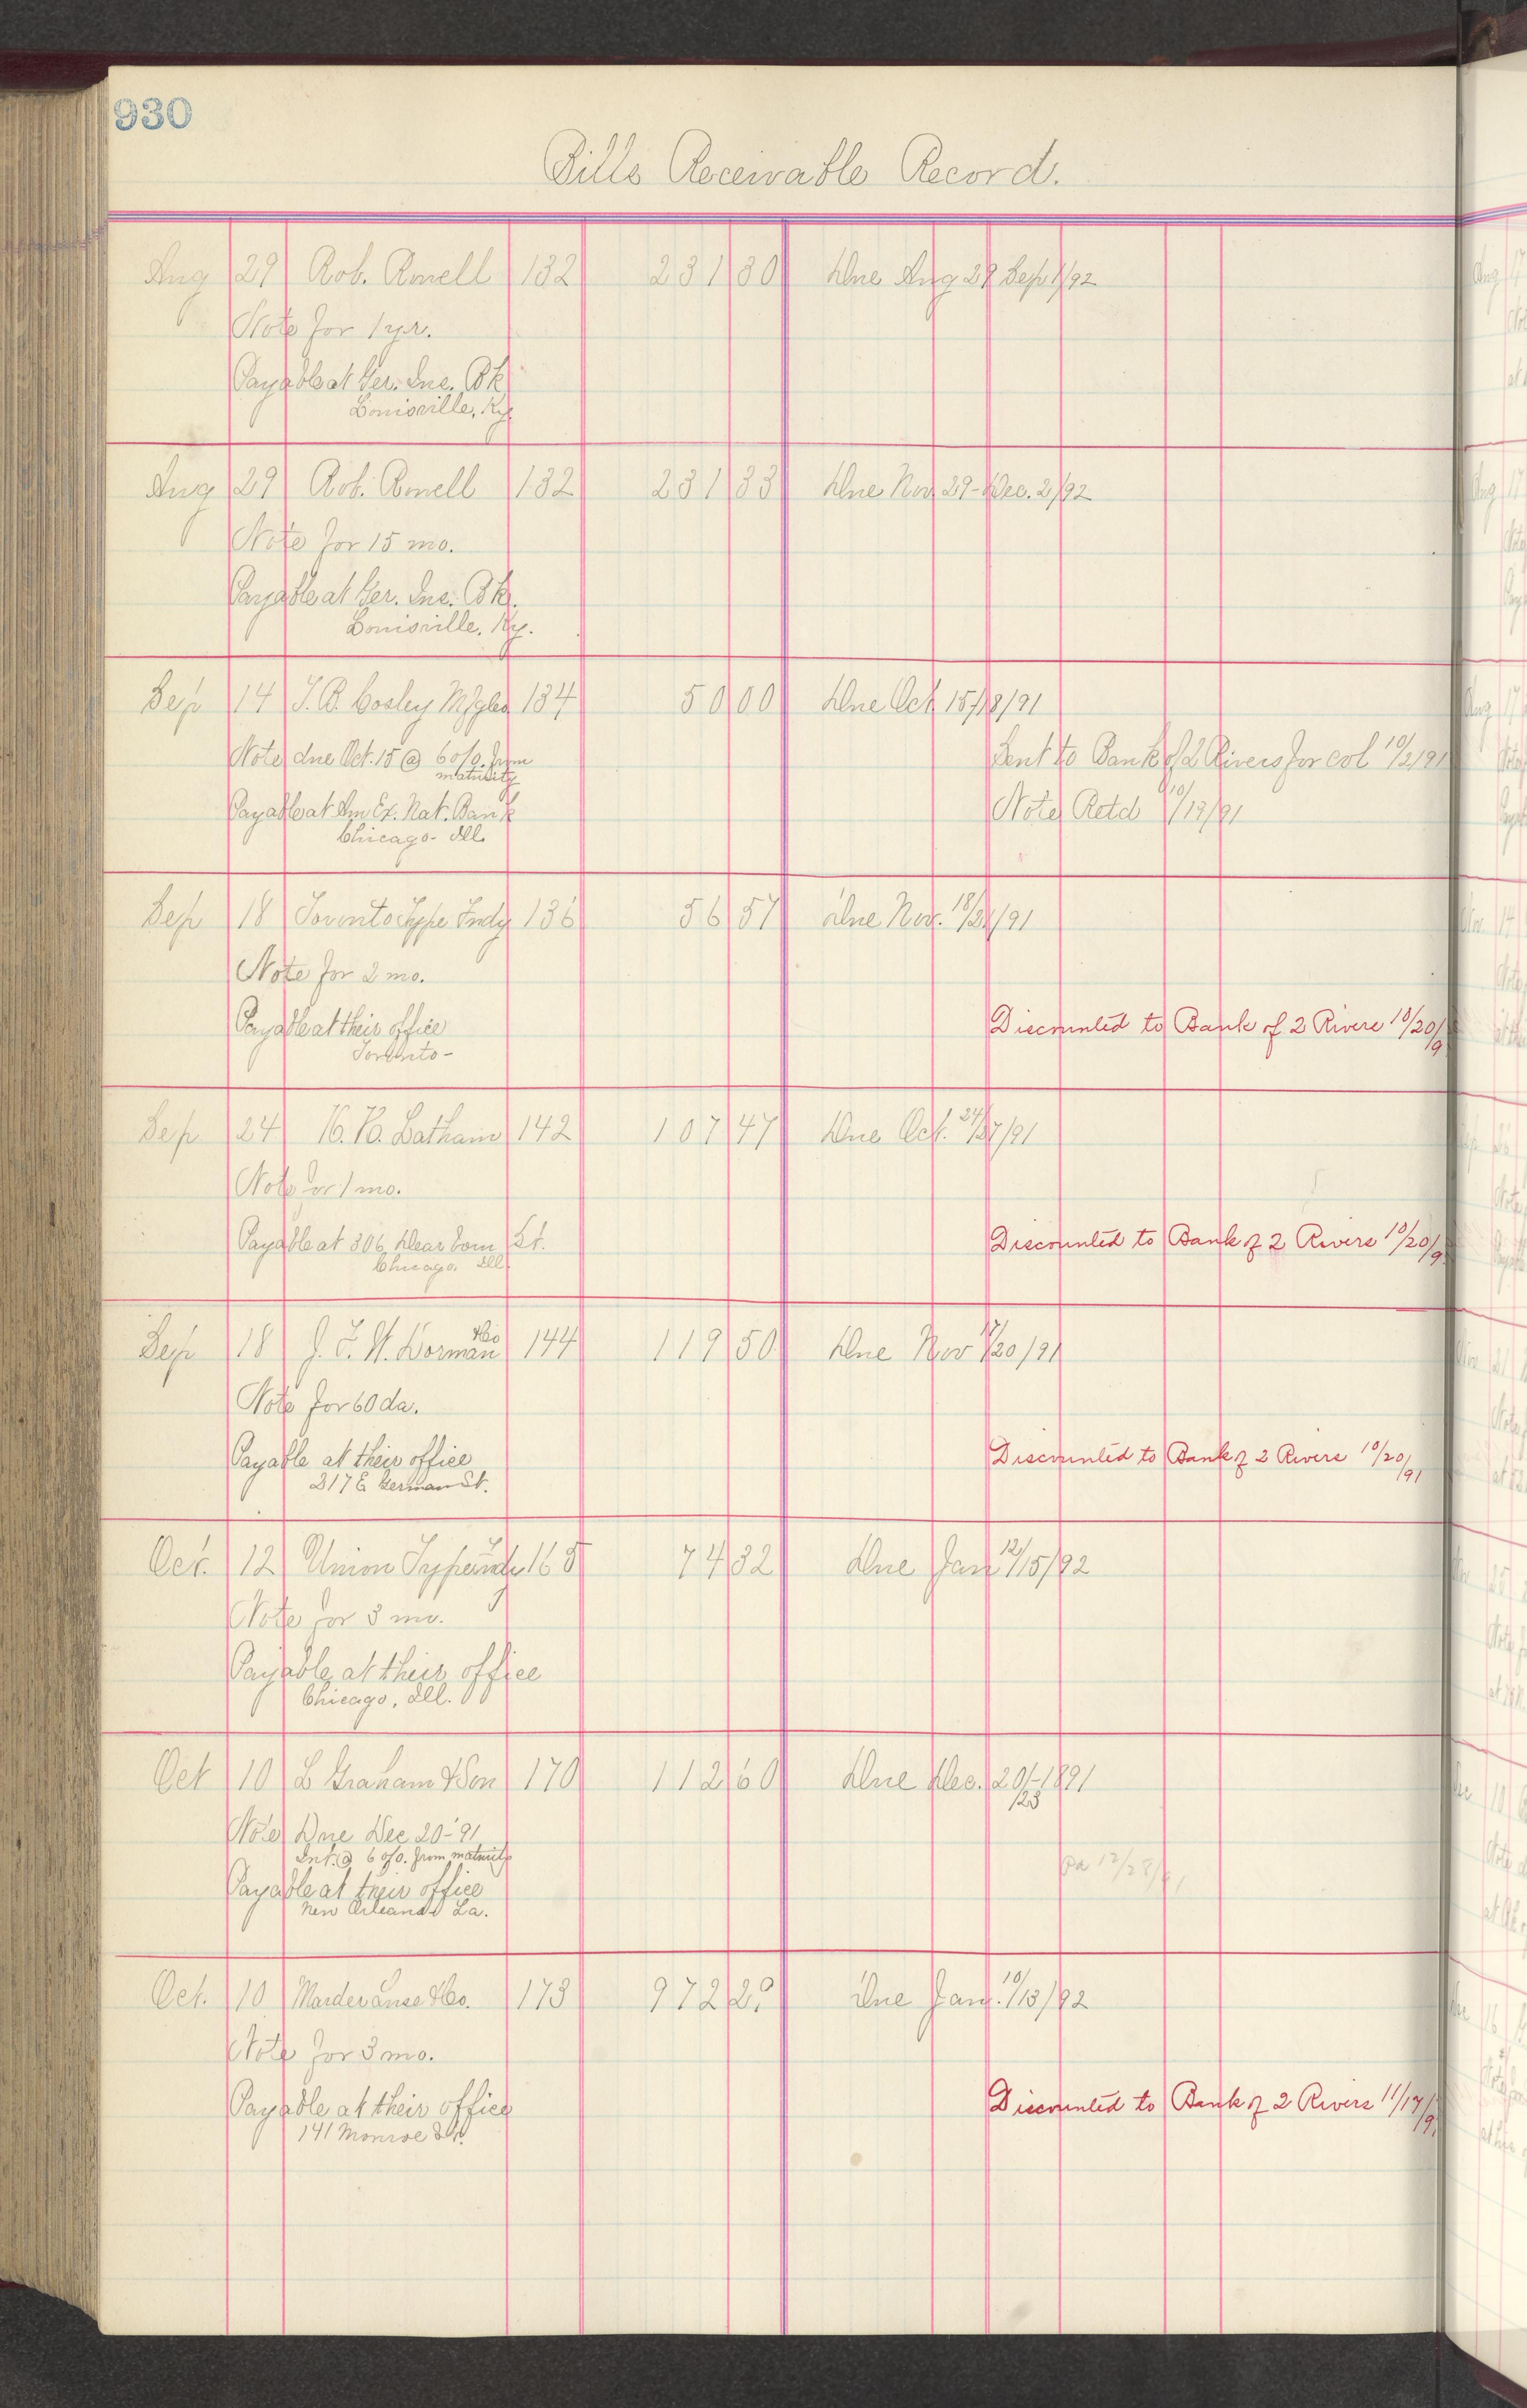 930
Bills Receivable Record.
Aug 29 Rob. Rowell 132 231 30 Due Aug 29 Sep 1/92
Note for 1 yr.
Payable at Ger. Ins. Bk
Louisville, Ky.
Aug 29 Rob. Rowell 132 231 33 Due Nov 29 - Dec. 2/92
Note for 15 mo.
Payable at Ger. Ins. Bk.
Louisville, Ky.
Sep 14 T. B. Cosley Mfg Co 134 50 00 Due Oct 15/18/91
Note due Oct. 15 @ 6 o/o. from
maturity
Sent to Bank of 2 Rivers for col 10/2/91
Payable at Am Ex. Nat. Bank
Note Retd 10/19/91
Chicago - Ill.
Sep 18 Toronto Type Fndy 136 56 57 Due Nov. 18/21/91
Note for 2 mo.
Payable at their office
Discounted to Bank of 2 Rivers 10/20/9
Toronto -
Sep 24 H. H. Latham 142 107 47 Due Oct. 24/27/91
Note for 1 mo.
Payable at 306 Dearborn St.
Discounted to Bank of 2 Rivers 10/20/9
Chicago. Ill.
Sep 18 J. F. W. Dorman &Co 144 119 50 Due Nov 17/20/91
Note for 60 da.
Payable at their office
Discounted to Bank of 2 Rivers 10/20/91
217 E German St.
Oct. 12 Union Type Fndy 165 74 32 Due Jan 12/15/92
Note for 3 mo.
Payable at their office
Chicago, Ill.
Oct 10 L Graham & Son 170 112 60 Due Dec. 20/-1891
/23
Note Due Dec 20-'91
Int. @ 6 o/o. from maturity
Pd 12/28/91
Payable at their office
New Orleans La.
Oct. 10 Marder Luse & Co. 173 972 29 Due Jan. 10/13/92
Note for 3 mo.
Payable at their office
Discounted to Bank of 2 Rivers 11/17/9
141 Monroe St.